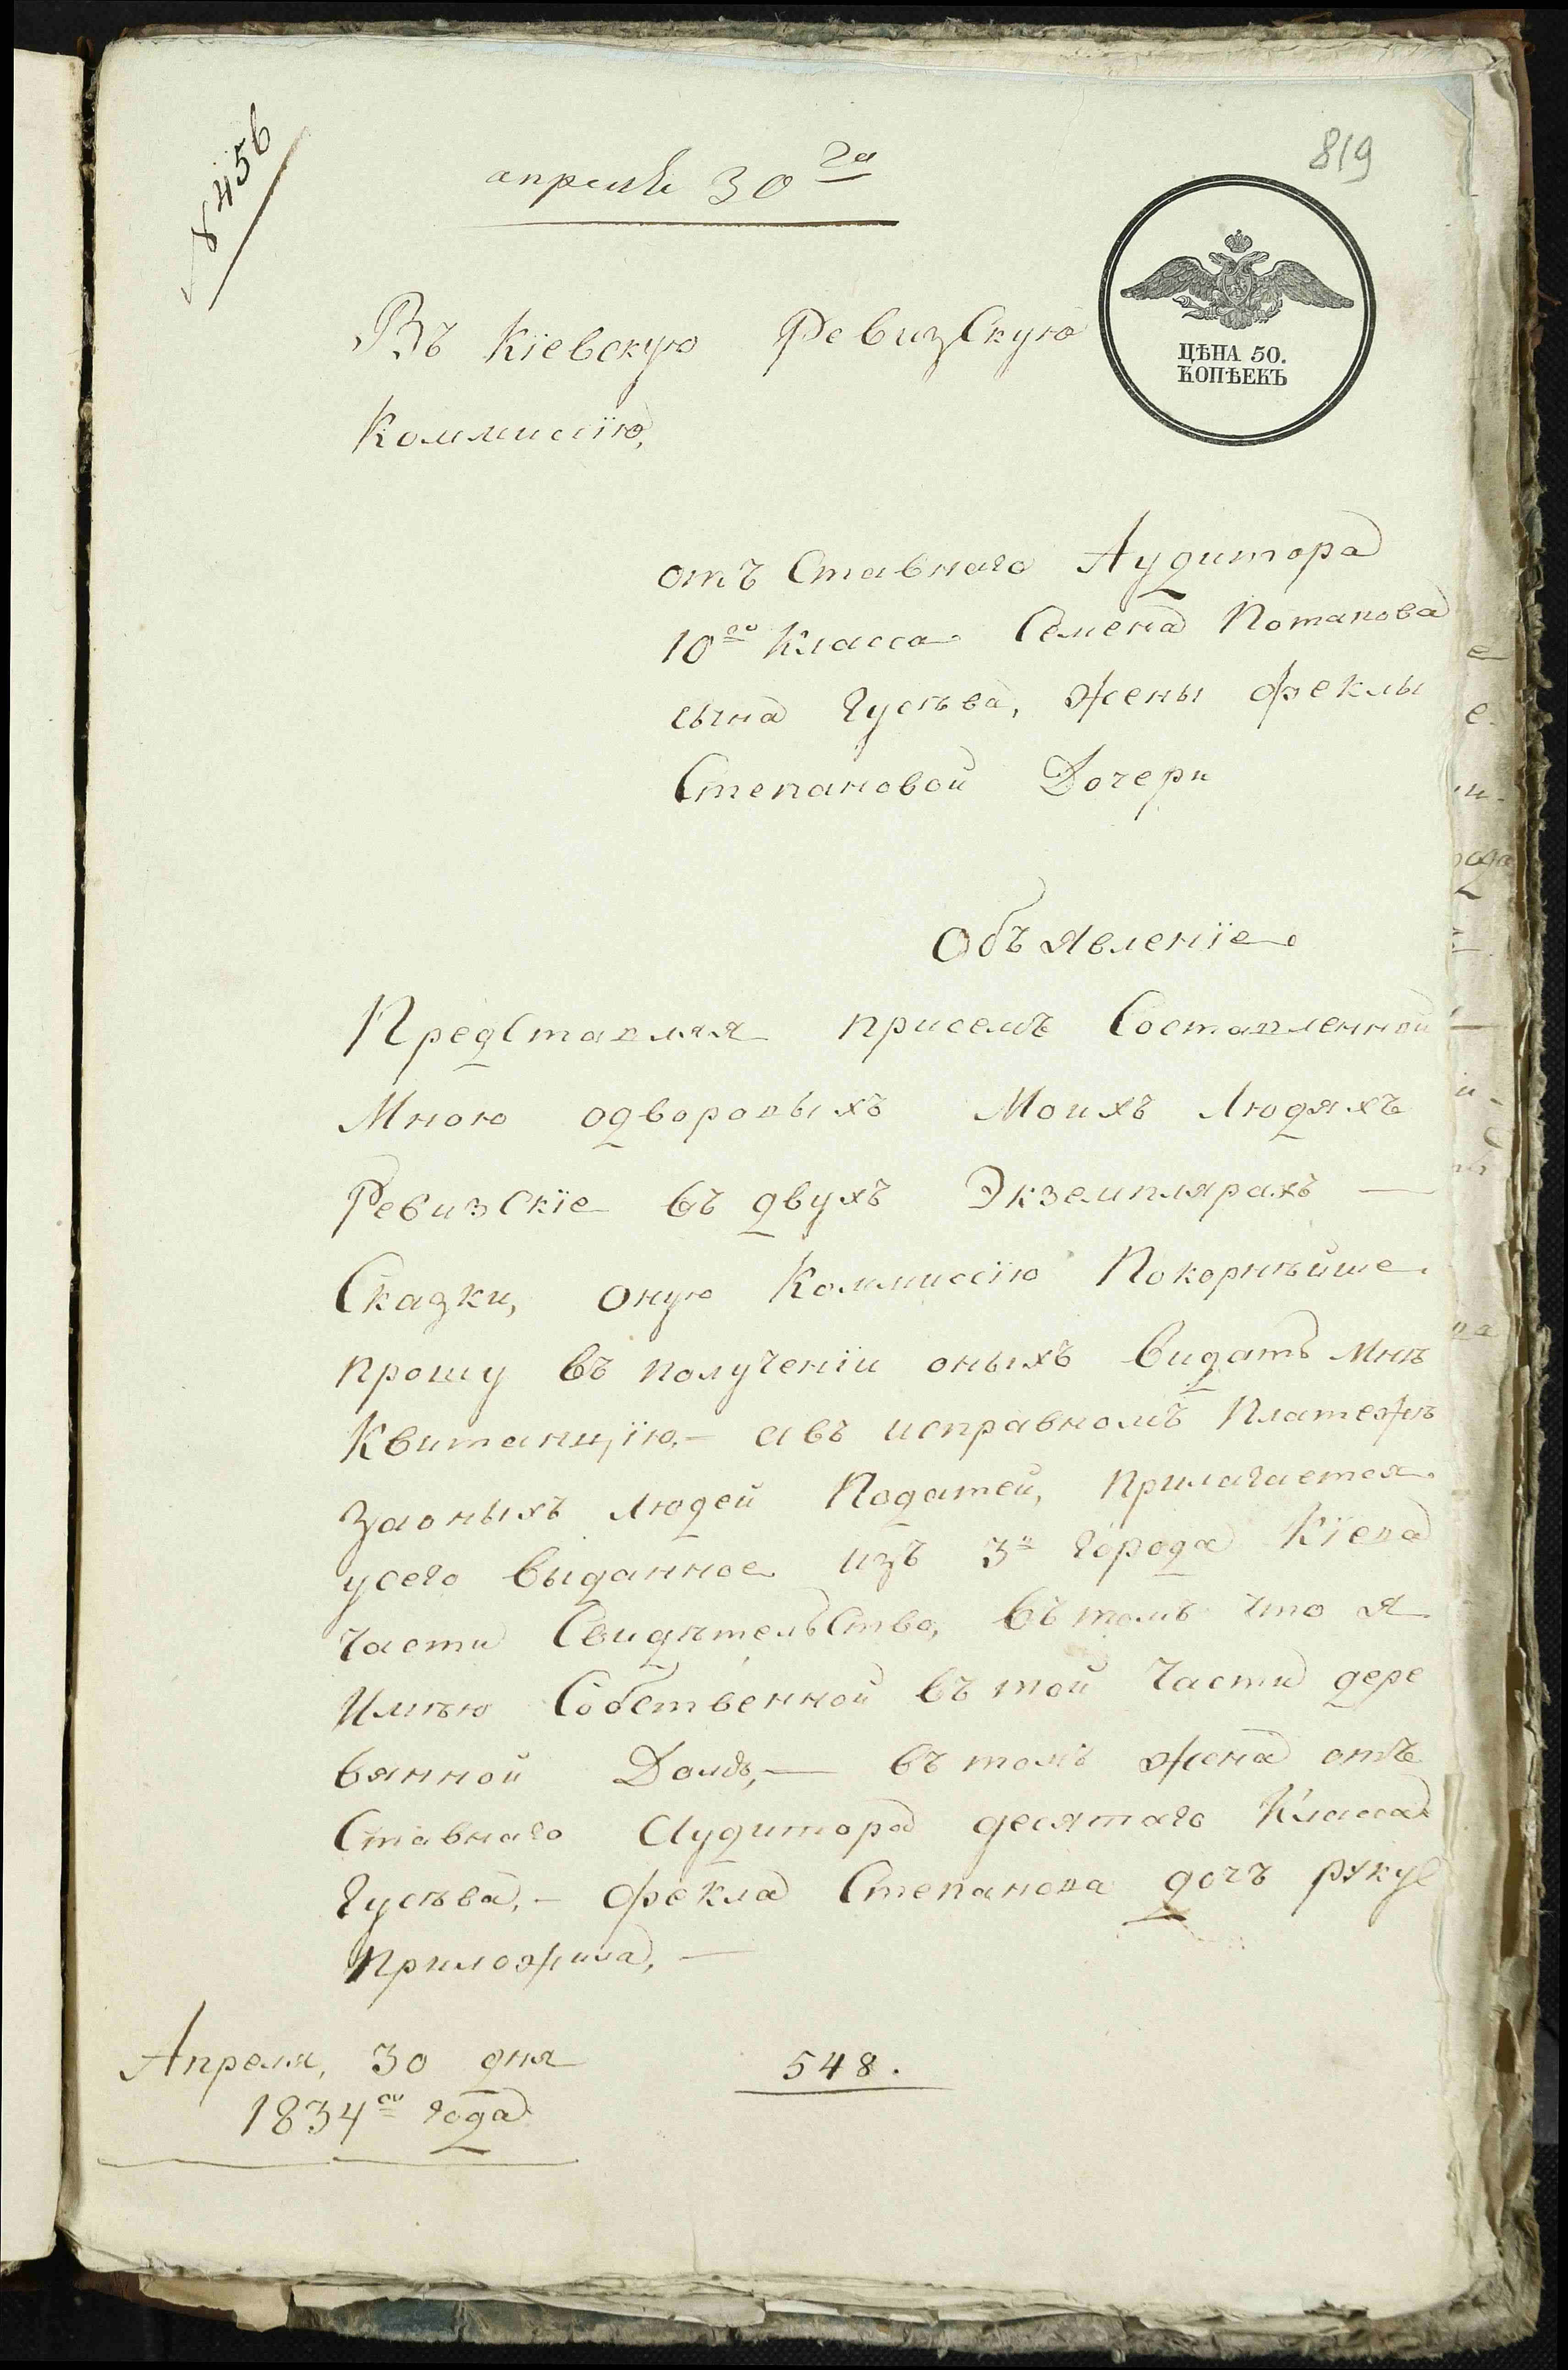 8456
апреля 30 го
819
ЦѢНА 50.
КОПѢЕКЪ
Въ Кіевскую РевизСкую
Коммиссію,
отъ Ставнаго Аудитора
10го Класса Семена Потапова
сына Гусѣва, жены феклы
Степановой Дочери
Объявленіе
ПредСтавляя присемъ Составленной
Мною одворовыхъ Моихъ Людяхъ
РевизСкіе въ двухъ Экземплярахъ —
Сказки, оную Коммиссію Покорнѣйше
прошу въ полученіи оныхъ видать мнѣ
Квитанцію, — авъ исправномъ Платежѣ
заоныхъ людей Податей, прилагается
усего выданное изъ 3й города Кіева
части СвидѣтельСтво, въ томъ что я
Имѣю Собственной въ той Части дере
вянной Домъ, — въ томъ жена отъ
Ставнаго Аудитора десятаго Класса
Гусѣва, — фекла Степанова дочъ руку
приложила, —
Апреля, 30 дня
1834го года
548.